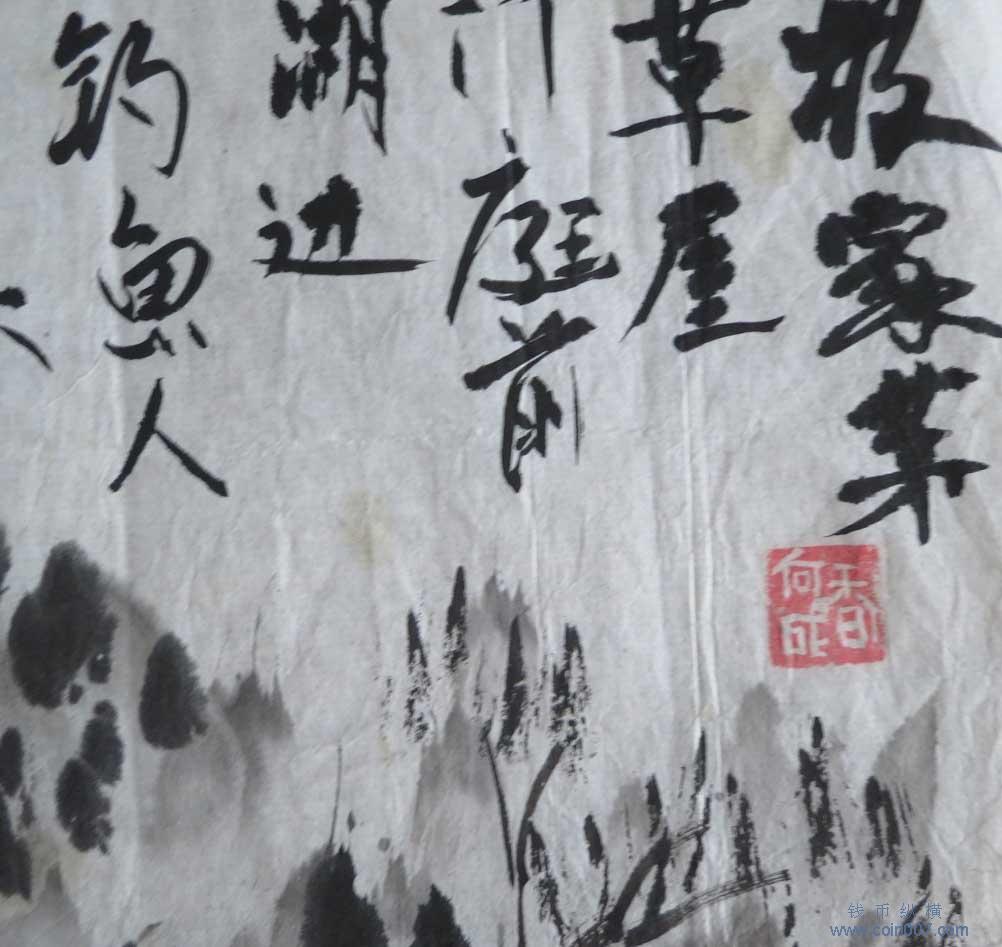 家业
草屋
庭前
湖边
钓鱼人
何
钱币纵横
www.coin007.com